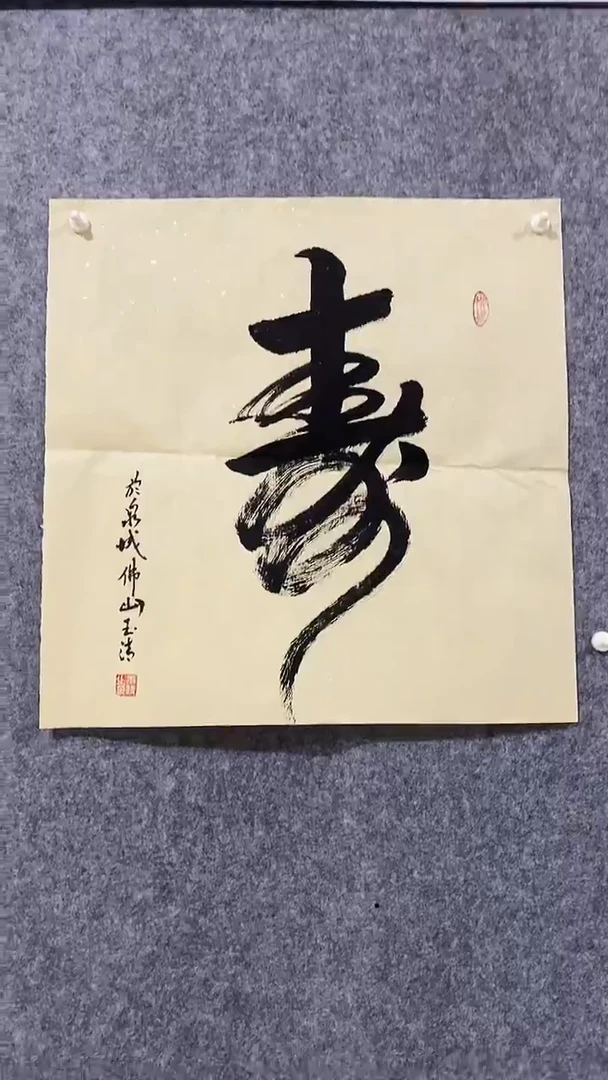 壽
於泉城佛山玉清